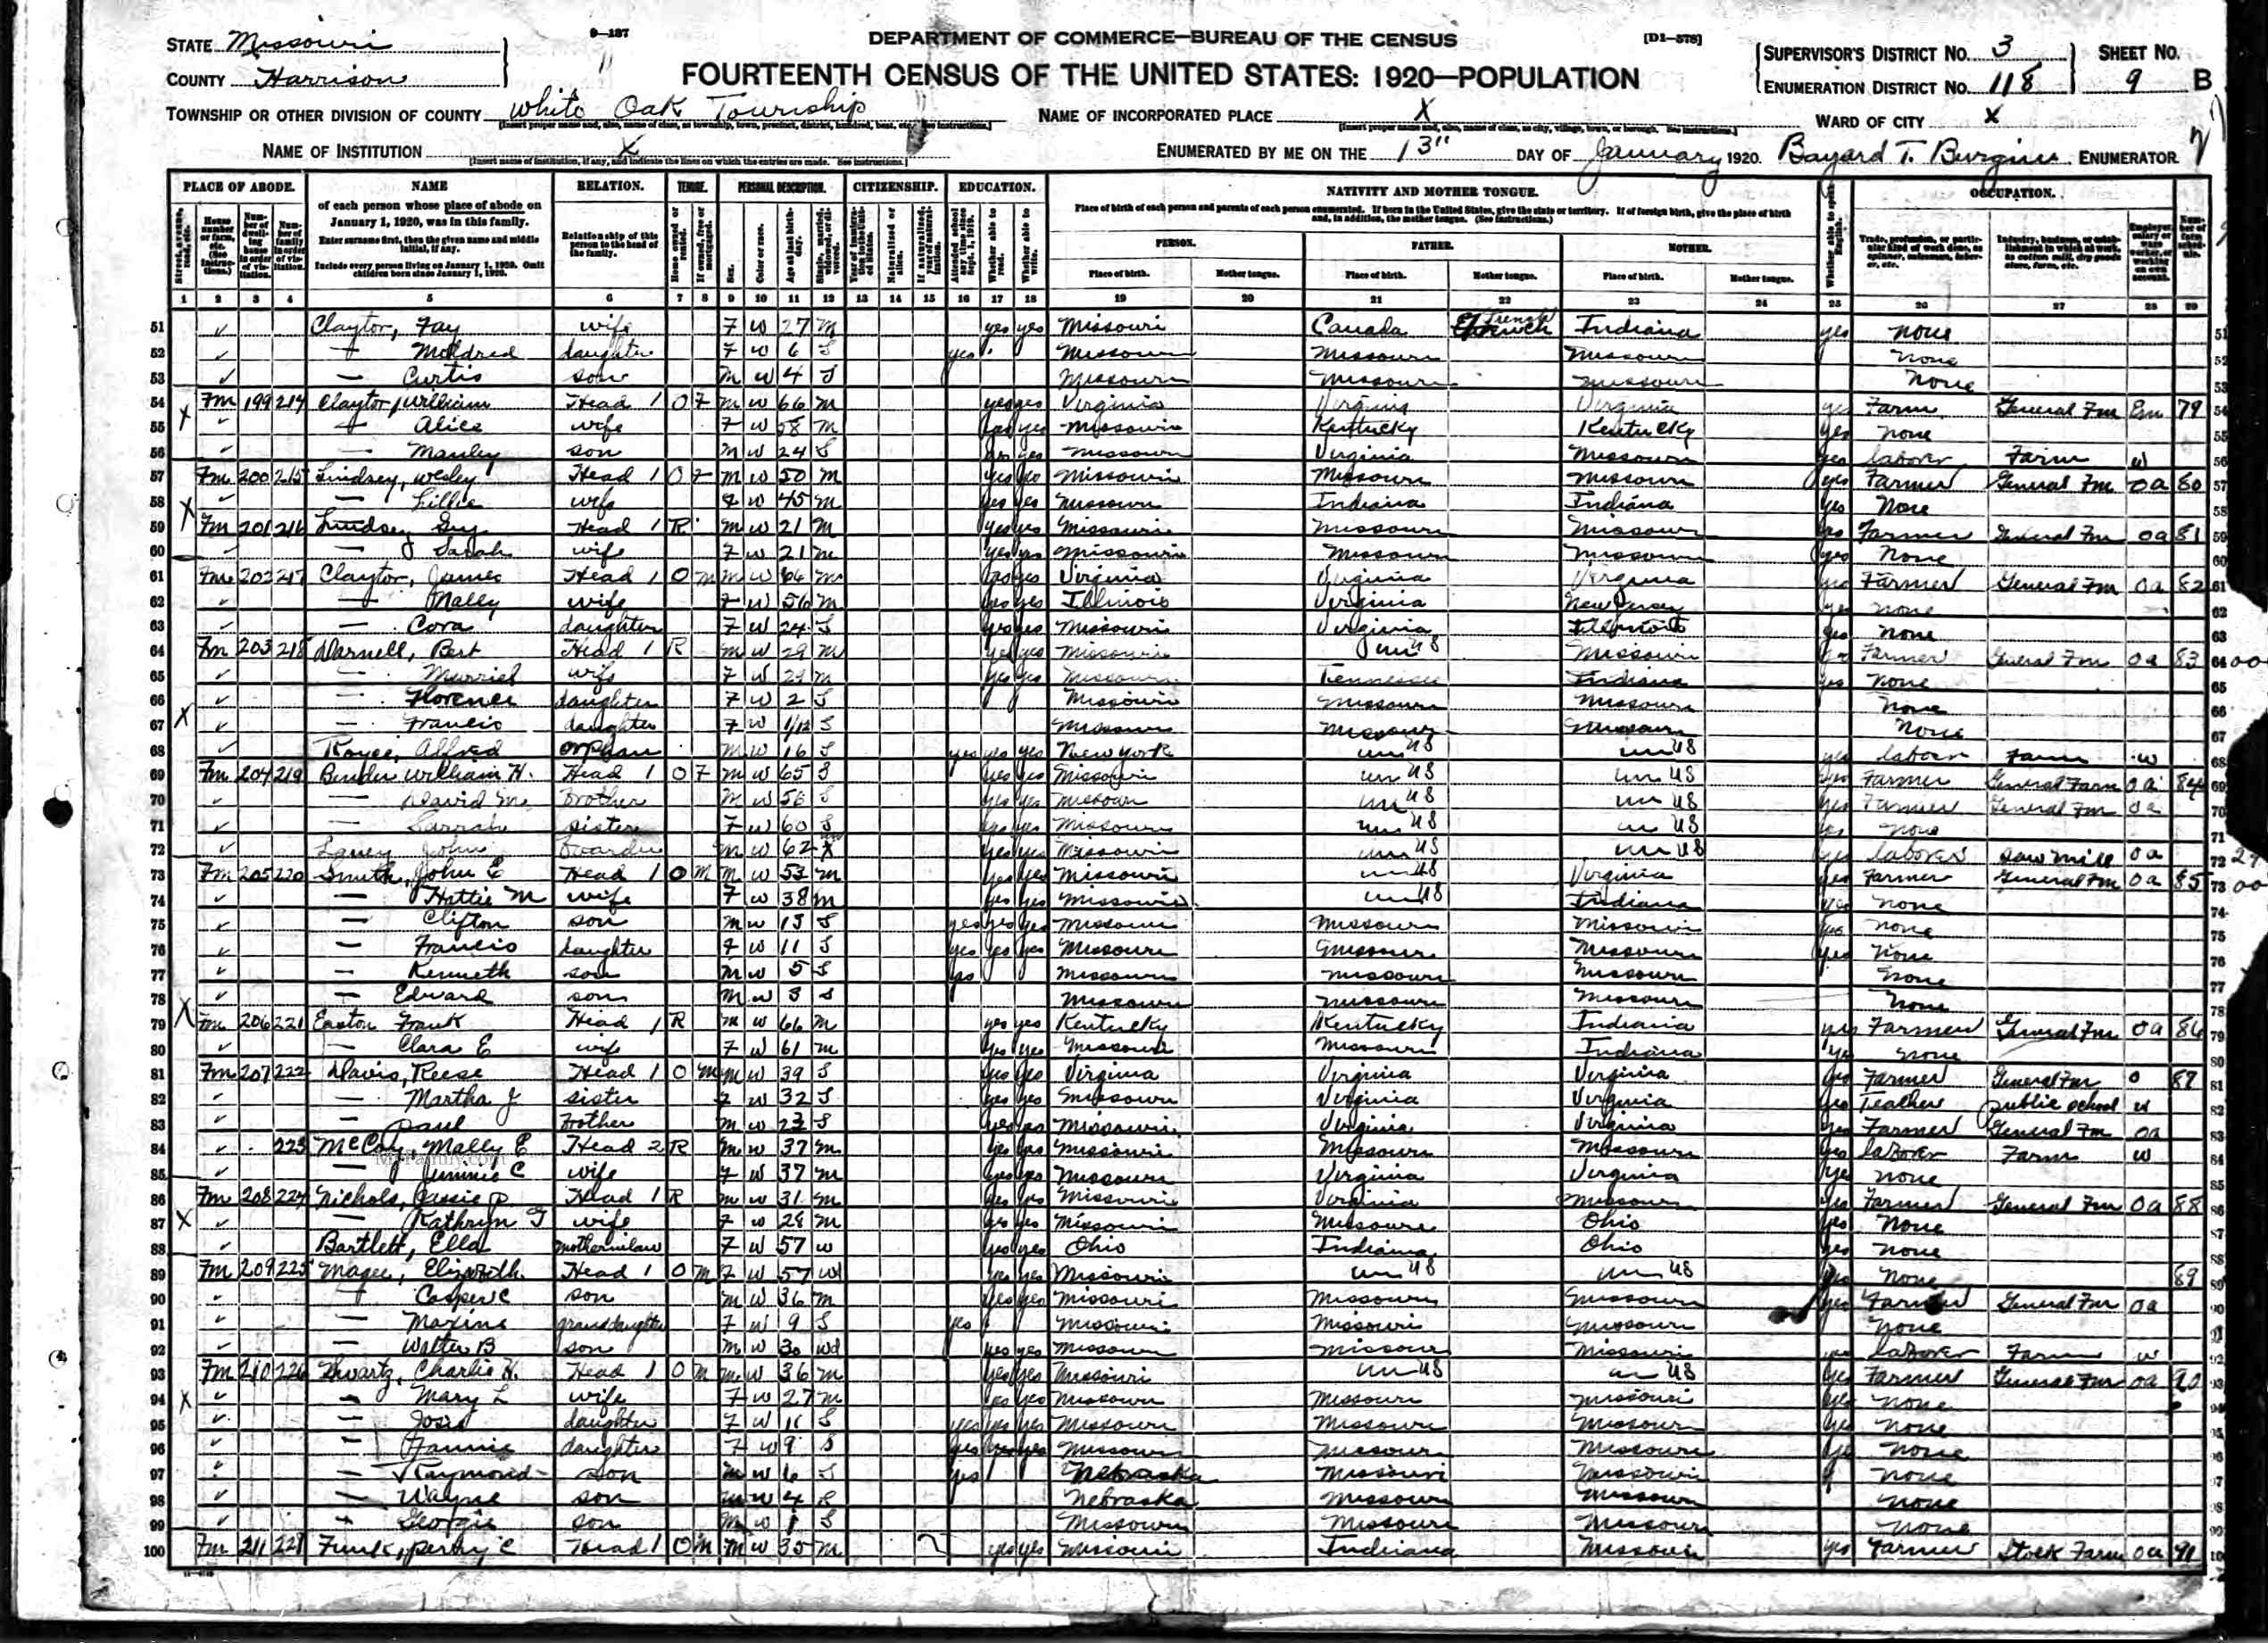 STATE Missouri
COUNTY Harrison
9-137
DEPARTMENT OF COMMERCE—BUREAU OF THE CENSUS
[D1-578]
FOURTEENTH CENSUS OF THE UNITED STATES: 1920—POPULATION
SUPERVISOR'S DISTRICT NO. 3 SHEET NO.
ENUMERATION DISTRICT NO. 118 9 B
TOWNSHIP OR OTHER DIVISION OF COUNTY White Oak Township
NAME OF INCORPORATED PLACE X
WARD OF CITY X
NAME OF INSTITUTION X
[Insert name of institution, if any, and indicate the lines on which the entries are made. See instructions.]
ENUMERATED BY ME ON THE 13" DAY OF January, 1920. Bayard T. ENUMERATOR
PLACE OF ABODE. NAME RELATION. TENURE. PERSONAL DESCRIPTION. CITIZENSHIP. EDUCATION. NATIVITY AND MOTHER TONGUE. OCCUPATION.
of each person whose place of abode on January 1, 1920, was in this family.
Enter surname first, then the given name and middle initial, if any.
Include every person living on January 1, 1920. Omit children born since January 1, 1920.
Relationship of this person to the head of the family.
Place of birth of each person and parents of each person enumerated. If born in the United States, give the state or territory. If of foreign birth, give the place of birth and, in addition, the mother tongue. (See instructions.)
PERSON. FATHER. MOTHER.
Place of birth. Mother tongue. Place of birth. Mother tongue. Place of birth. Mother tongue.
1 2 3 4 5 6 7 8 9 10 11 12 13 14 15 16 17 18 19 20 21 22 23 24 25 26 27 28 29
51 Claytor, Fay wife F W 27 M yes yes Missouri Canada French Indiana yes none
52 — Mildred daughter F W 6 S yes Missouri Missouri Missouri none
53 — Curtis son M W 4 S Missouri Missouri Missouri none
54 Fm 199 214 Claytor, William Head 1 O F M W 66 M yes yes Virginia Virginia Virginia yes Farm General Fm Em 79
55 — Alice wife F W 58 M yes yes Missouri Kentucky Kentucky yes none
56 — Manley son M W 24 S yes yes Missouri Virginia Missouri yes laborer Farm w
57 Fm 200 215 Lindsey, Wesley Head 1 O F M W 50 M yes yes Missouri Missouri Missouri yes Farmer General Fm Oa 80
58 — Lillie wife F W 45 M yes yes Missouri Indiana Indiana yes none
59 Fm 201 216 Lindsey Guy Head 1 R M W 21 M yes yes Missouri Missouri Missouri yes Farmer General Fm oa 81
60 — Sarah wife F W 21 M yes yes Missouri Missouri Missouri yes none
61 Fm 202 217 Claytor, James Head 1 O M M W 66 M yes yes Virginia Virginia Virginia yes Farmer General Fm Oa 82
62 — Mally wife F W 56 M yes yes Illinois Virginia New Jersey yes none
63 — Cora daughter F W 24 S yes yes Missouri Virginia Illinois yes none
64 Fm 203 218 Darnell, Bert Head 1 R M W 29 M yes yes Missouri un US Missouri yes Farmer General Fm oa 83
65 — Murriel wife F W M yes yes Missouri Tennessee Indiana yes none
66 — Florence daughter F W 2 S Missouri Missouri Missouri none
67 — Francis daughter F W 1/12 S Missouri Missouri Missouri none
68 Royce, Alfred orphan M W 16 S yes yes yes New York un US un US yes laborer Farm w
69 Fm 204 219 Bender William H. Head 1 O F M W 65 S yes yes Missouri un US un US yes Farmer General Farm Oa 84
70 — David M Brother M W 56 S yes yes Missouri un US un US yes Farmer General Fm oa
71 — Sarrah sister F W 60 S yes yes Missouri un US un US yes none
72 John boarder M W 62 yes yes Missouri un US un US yes laborer saw mill Oa
73 Fm 205 220 Smith, John E Head 1 O M M W 53 M yes yes Missouri un US Virginia yes Farmer General Fm Oa 85
74 — Hattie M wife F W 38 M yes yes Missouri un US Indiana yes none
75 — Clifton son M W 13 S yes yes yes Missouri Missouri Missouri yes none
76 — Francis daughter F W 11 S yes yes yes Missouri Missouri Missouri yes none
77 — Kenneth son M W 5 S yes Missouri Missouri Missouri none
78 — Edward son M W 3 S Missouri Missouri Missouri none
79 Fm 206 221 Easton Frank Head 1 R M W 66 M yes yes Kentucky Kentucky Indiana yes Farmer General Fm Oa 86
80 — Clara E wife F W 61 M yes yes Missouri Missouri Indiana yes none
81 Fm 207 222 Davis, Reese Head 1 O M M W 39 S yes yes Virginia Virginia Virginia yes Farmer General Fm O 87
82 — Martha J sister F W 32 S yes yes Missouri Virginia Virginia yes Teacher public school w
83 — Paul brother M W 23 S yes yes Missouri Virginia Virginia yes Farmer General Fm oa
84 223 McCoy, Mally E Head 2 R M W 37 M yes yes Missouri Missouri Missouri yes laborer Farm w
85 — Jennie C wife F W 37 M yes yes Missouri Virginia Virginia yes none
86 Fm 208 224 Nichols, Jessie P. Head 1 R M W 31 M yes yes Missouri Virginia Missouri yes Farmer General Fm Oa 88
87 — Kathryn wife F W 28 M yes yes Missouri Missouri Ohio yes none
88 Bartlett, Ella motherinlaw F W 57 W yes yes Ohio Indiana Ohio yes none
89 Fm 209 225 Magee, Elizabeth Head 1 O M F W 57 wd yes yes Missouri un US un US yes none 89
90 — Casper C son M W 36 M yes yes Missouri Missouri Missouri yes Farmer General Fm oa
91 — Maxine granddaughter F W 9 S yes Missouri Missouri Missouri none
92 — Walter B son M W 30 wd yes yes Missouri Missouri Missouri yes laborer Farm w
93 Fm 210 226 Charlie H. Head 1 O M M W 36 M yes yes Missouri un US un US yes Farmer General Fm oa 90
94 — Mary L wife F W 27 M yes yes Missouri Missouri Missouri yes none
95 — daughter F W 11 S yes yes yes Missouri Missouri Missouri yes none
96 — Fannie daughter F W 9 S yes yes yes Missouri Missouri Missouri yes none
97 — Raymond son M W 6 S yes Nebraska Missouri Missouri none
98 — Wayne son M W 4 S Nebraska Missouri Missouri none
99 — Georgie son M W 1 S Missouri Missouri Missouri none
100 Fm 211 227 Funk, Perry C Head 1 O M M W 35 M yes yes Missouri Indiana Missouri yes Farmer Stock Farm oa 91